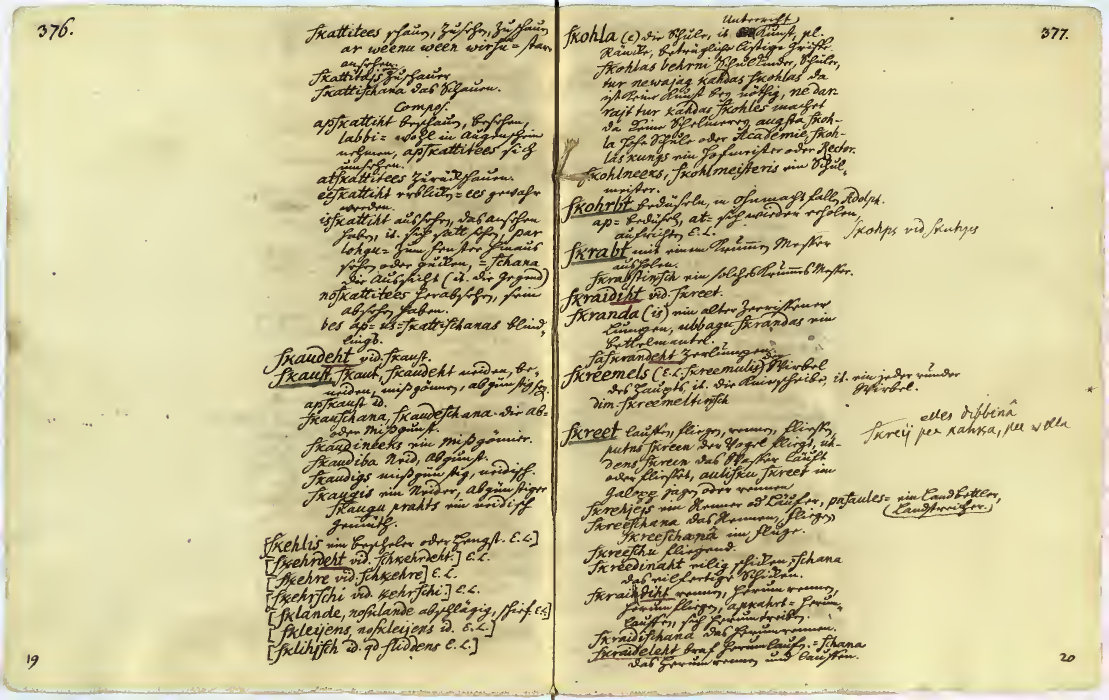 376.
skattitees schaun, zusehen, zuschaun
ar weenu ween wirsu = starr
ansehen.
skattitajs Zuschauer
skattischana das Schauen.
Compos.
apskattiht beschaun, besehen,
labbi = wohl in Augenschein
nehmen, apskattitees sich
umsehen.
atskattitees zurückschauen.
eeskattiht erblicken = ees gewahr
werden.
isskattiht aussehen, das ansehen
haben, it. sich satt sehen, par
lohgu = zum Fenster hinaus
sehen oder gucken, = schana
die Aussicht (it. die Gegend)
noskattitees herabsehen, sein
absehen haben.
bes ap= us=skattischanas blind-
lings.
skaudeht vid. skaust.
skaust, skaut, skaudeht neiden, be-
neiden, mißgönnen, abgünstig seyn.
apskaust id.
skauschana, skaudeschana die Ab-
oder Mißgunst.
skaudineeks ein Mißgönner.
skaudiba Neid, Abgunst.
skaudigs mißgünstig, neidisch.
skaugis ein Neider, Abgünstiger
skaugu prahts ein neidisch
gemüth.
[skehlis ein Bescheler oder Hengst. E.L.]
[skehrdeht vid. schkehrdeht.] E.L.
[skehre vid. schkehre] E.L.
[skehrschi vid. kehrschi.] E.L.
[sklande, nosklande abschlägig, schief E.L.]
[skleijens, noskleijens id. E.L.]
[sklihsch id. qd sliddens E.L.]
19
377.
Unterricht,
skohla (e) die Schule, it. Kunst, pl.
Räncke, betrügliche listige Griffe.
skohlas behrni Schulkinder, Schüler,
tur newajag kahdas skohlas da
ist keine Kunst bey nöthig, ne dar-
rajt tur kahdas skohles machet
da keine Schelmerey augsta skoh-
la hohe Schule oder Academie, skoh-
las kungs ein Hofmeister oder Rector.
skohlneeks, skohlmeisteris ein Schul-
meister.
skohrbt beduseln, in Ohnmacht fallen Adolph.
ap= beduselt, at= sich wieder erholen,
aufrichten E.L.
skohps vid skuhps
skrabt mit einem krummen Messer
aushölen.
skrabstinsch ein solches krummes Messer.
skraidiht vid. skreet.
skranda (is) ein alter zerrissener
Lumpen, ubbagu skrandas ein
Bettelmantel.
saskrandeht zerlumpen.
skreemels (E.L. skreemulis) der Wirbel
des Haupts, it. die Kniescheibe, it. ein jeder runder
Wirbel.
dim. skreemeltinsch
skreet lauffen, fliegen, rennen, fliessen
putns skreen der Vogel fliegt, uh-
dens skreen das Wasser läufft
oder fliesset, auliksu skreet im
Galopp jagen oder rennen
elles dibbinâ
skrehjejs ein Renner od Läufer, pasaules= ein Landbettler,
(Landstreicher.)
skreeschana das Rennen, fliegen
skreeschanâ im Fluge.
skreeschu fliegend.
skreedinaht eilig schicken, =schana
das eilfertige Schicken.
skraidiht rennen, herum rennen,
herum fliegen, apkahrt= herum-
lauffen, sich herumtreiben.
skraidischana das herumrennen.
skraideleht brav herumlauffen. =schana
das herum rennen und lauffen.
20